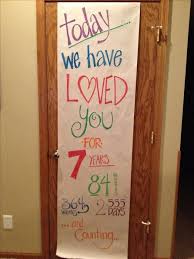 today...
we have
LOVED
YOU
FOR
7 YEARS
84 months
364 weeks 2,555 DAYS
...and Counting...